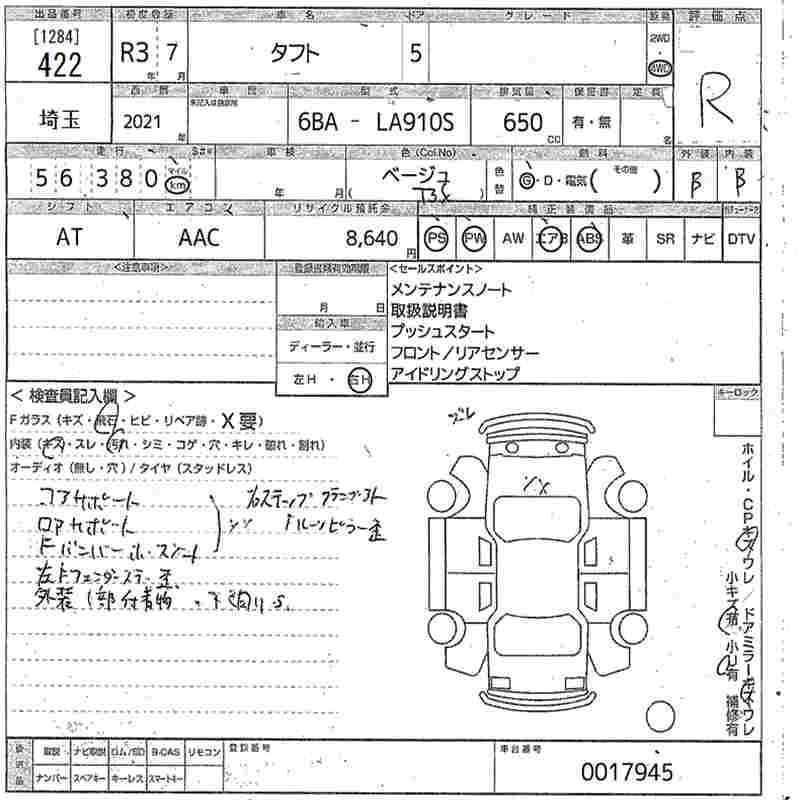 出品番号 初度登録 車名 ドア グレード 駆動 評価点
[1284]
422 R3 7 タフト 5 2WD
年 月 4WD
R
西暦 車歴 型式 排気量 保証書 定員
埼玉 2021 年 6BA - LA910S 650 CC 有・無 名
走行 車検 色(Col.No) 燃料 外装 内装
56380 マイル km 年 月 ベージュ
( T3X ) 色替 G・D・電気( その他 ) B B
シフト エアコン リサイクル預託金 純正装備品
AT AAC 8,640 円 PS PW AW エアB ABS 革 SR ナビ DTV
<注意事項> <セールスポイント>
月 日 メンテナンスノート
取扱説明書
輸入車 プッシュスタート
ディーラー・並行 フロント/リアセンサー
左H・右H アイドリングストップ
<検査員記入欄> キーロック
Fガラス(キズ・飛石・ヒビ・リペア跡・X要)
内装(キズ・スレ・汚れ・シミ・コゲ・穴・キレ・破れ・割れ)
オーディオ(無し・穴)/タイヤ(スタッドレス)
コアサポート
ロアサポート
Fバンパーホースメント
右ステップ
ルーフピラー歪
左Fフェンダーステー歪
外装1部付着物
ズレ
XX
ホイル・CPキズウレ/ドアミラーキズウレ
小キズ有 小U有 補修有
取説 ナビ取説 ロム/SD B-CAS リモコン 登録番号 車台番号
ナンバー スペアキー キーレス スマートキー 0017945